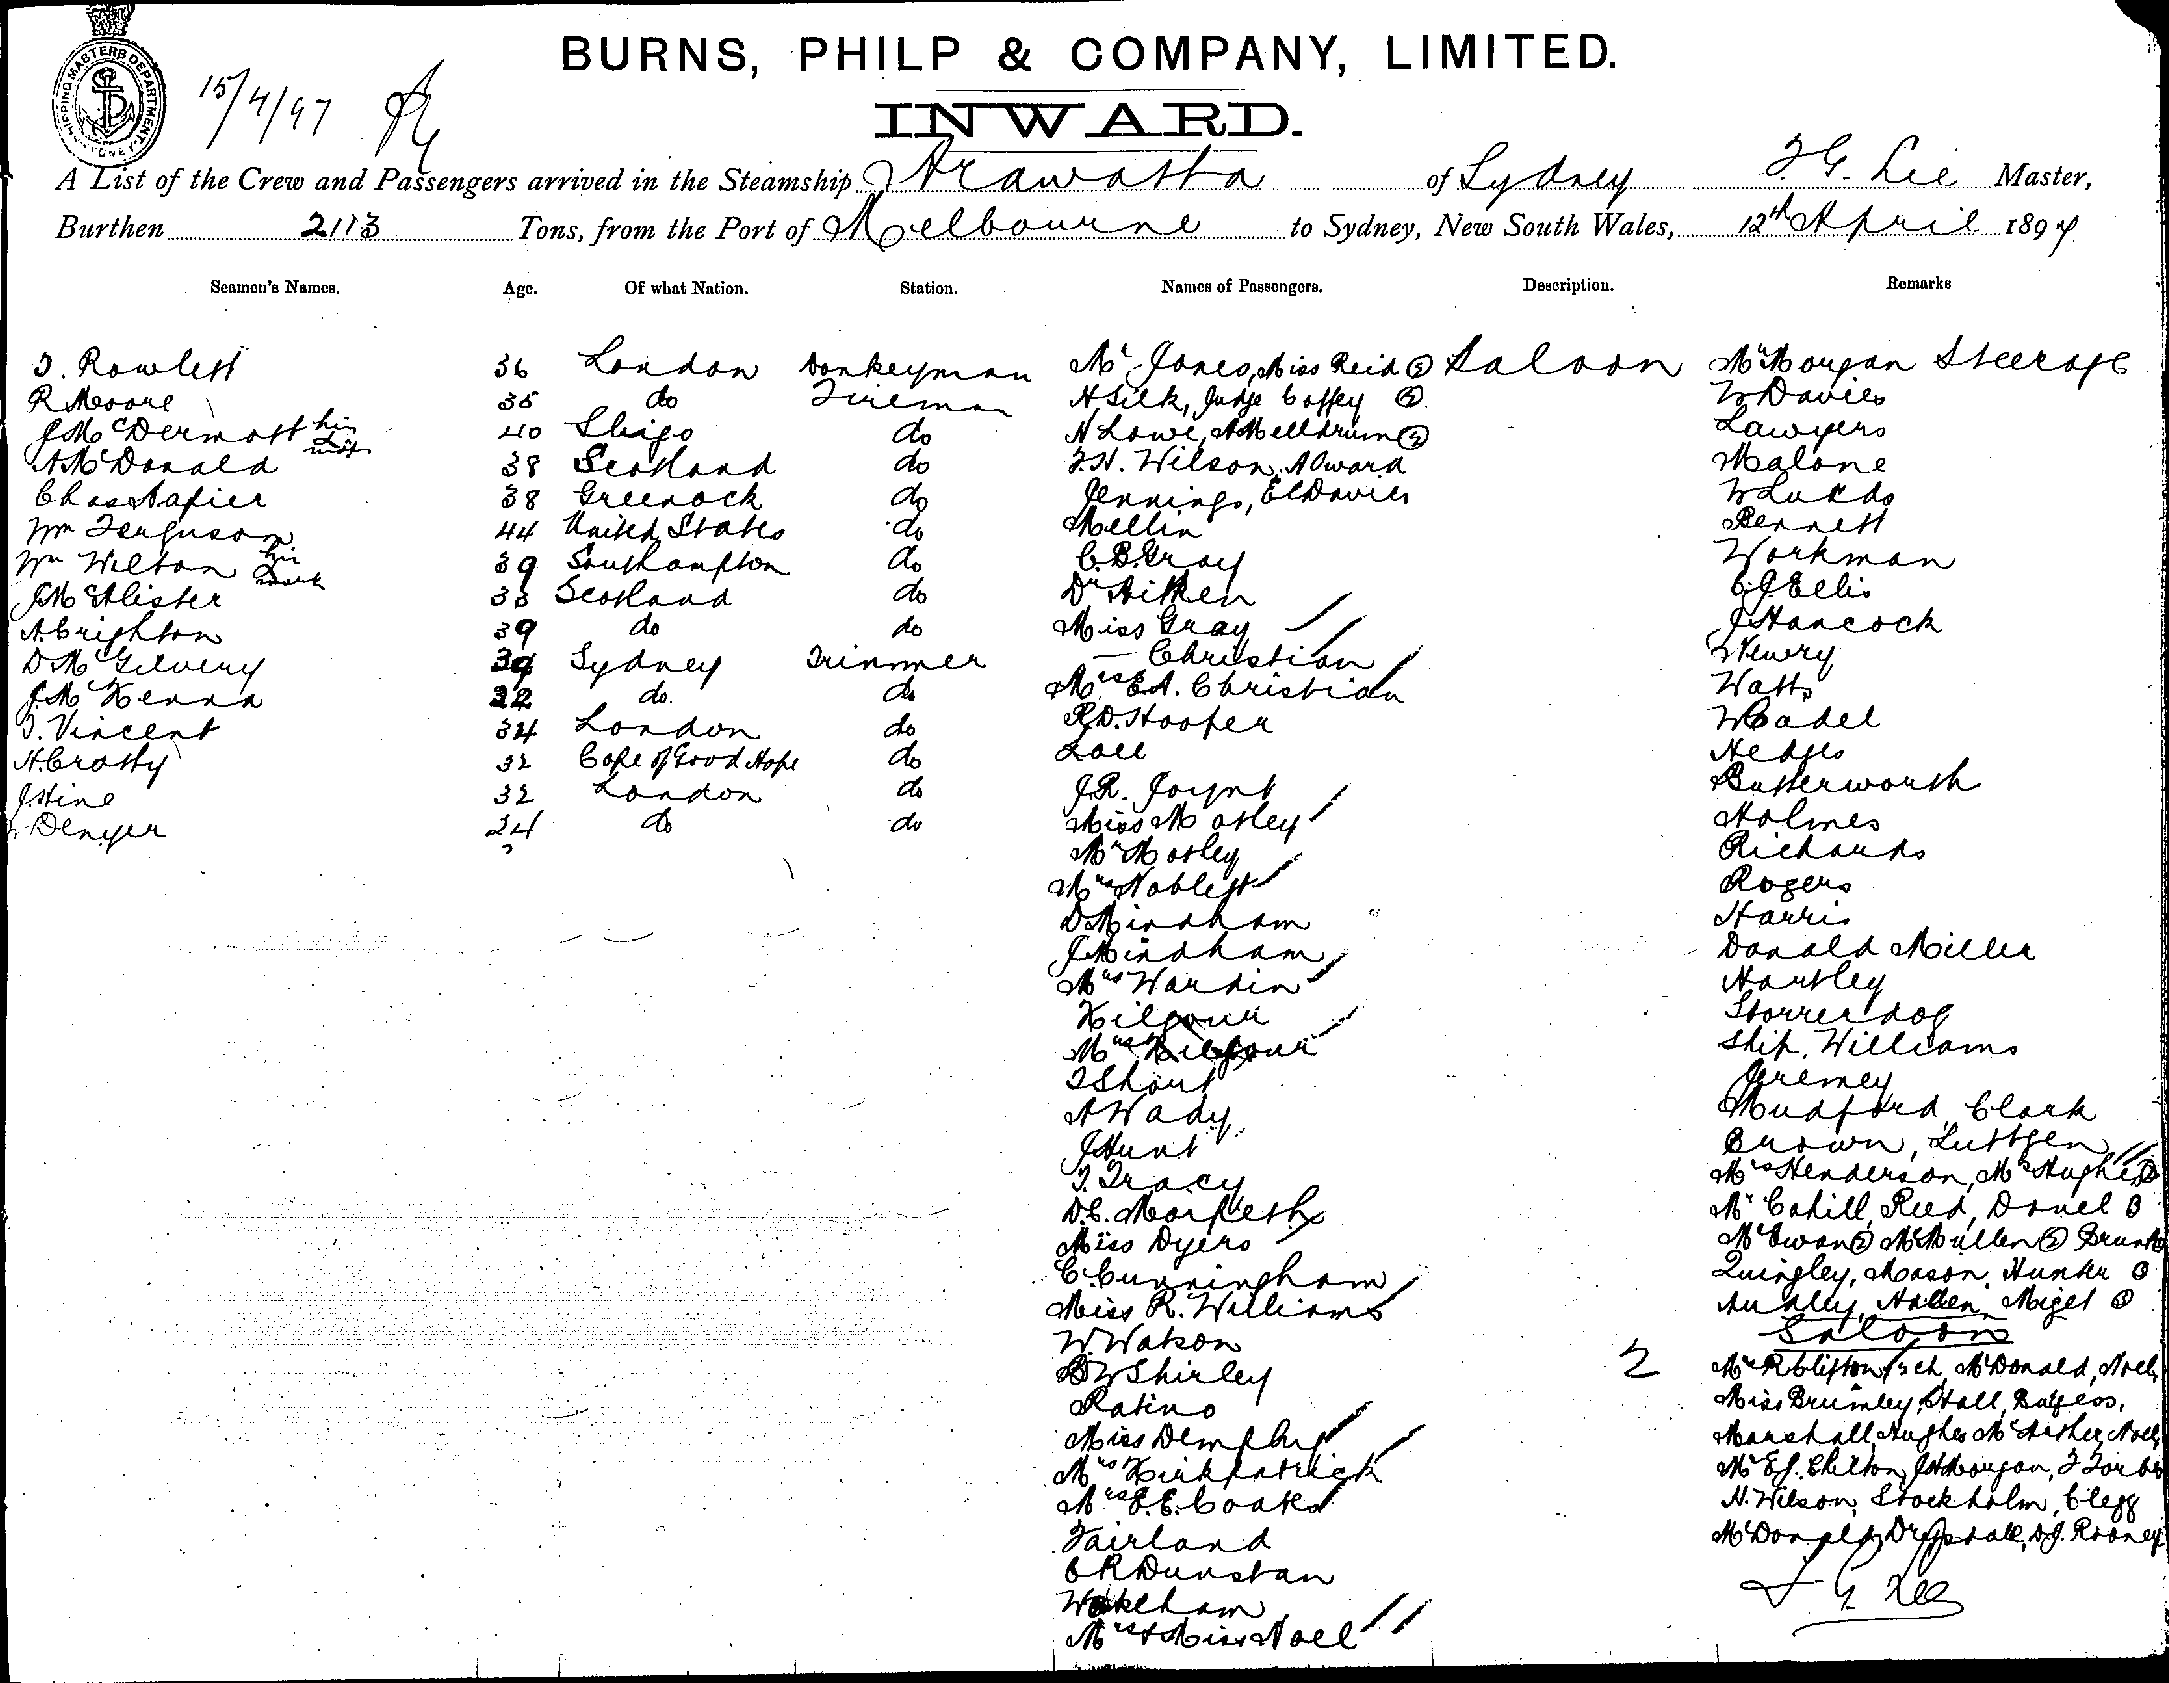 BURNS, PHILP & COMPANY, LIMITED.
SHIPPING MASTERS DEPARTMENT SYDNEY
15/4/97
INWARD.
A List of the Crew and Passengers arrived in the Steamship Arawatta of Sydney J. G. Lee Master,
Burthen 2113 Tons, from the Port of Melbourne to Sydney, New South Wales, 12th April 1897
Seamen's Names. Age. Of what Nation. Station. Names of Passengers. Description. Remarks
T. Rowlett 36 London Donkeyman Mr Jones, Miss Reid ② Saloon Mr Morgan Steerage
R Moore 35 do Fireman H Silk, Judge Coffey ② W Davies
J McDermott his mark 40 Sligo do N Lowe, A Melldrum ② Lawyers
A McDonald 38 Scotland do J.H. Wilson, A Oward Malone
Chas Napier 38 Greenock do Jennings, E C Davies W Lukds
Wm Ferguson 44 United States do Mellin Bennett
Wm Wilton his mark 39 Southampton do C.B. Gray Workman
J McAlister 33 Scotland do Dr Aitken C J Ellis
A. Crighton 39 do do Miss Gray J Hancock
D McGilvery 39 Sydney Trimmer — Christian Newry
J. McKenna 22 do do Mrs E A. Christian Watts
T. Vincent 34 London do R.D. Hooper W Cadel
H. Crotty 32 Cape of Good Hope do Zoll Hedges
J Hine 32 London do J.R. Joynt Butterworth
Denyer 24 do do Miss Motley Holmes
Mr Motley Richards
Mrs Noblett Rogers
D Mindham Harris
J Mindham Donald Miller
Mrs Wardin Hartley
Kilgour Storrer dog
Mrs Kilgour Ship. Williams
T Short Jeremey
A Wady Mudford, Clark
J Hunt Brown, Luttgen
T. Tracy Mrs Henderson, Mrs Hughes
D.C. Morpeth Mr Cahill, Reed, Donel 3
Miss Dyers McEwan ② McMullen ②
C. Cunningham Quingley, Mason, Hunter 3
Miss R. Williams Audley, Allen, Miget 3
W. Watson Saloon
D W Shirley 2 Mr R Clifton, McDonald, Noel,
Ratino Miss Brumley, Hall, Burgess,
Miss Dempsey Marshall, Hughes McArther, Noel,
Mrs Kirkpatrick Mr E J. Chilton, J H Morgan, J Forbes
Mrs E. E. Coates H. Wilson, Stockholm, Clegg
Fairland McDonald, Drysdale, D.J. Rooney
C R Dunstan J G Lee
Wakeham
Mrs & Miss Noel